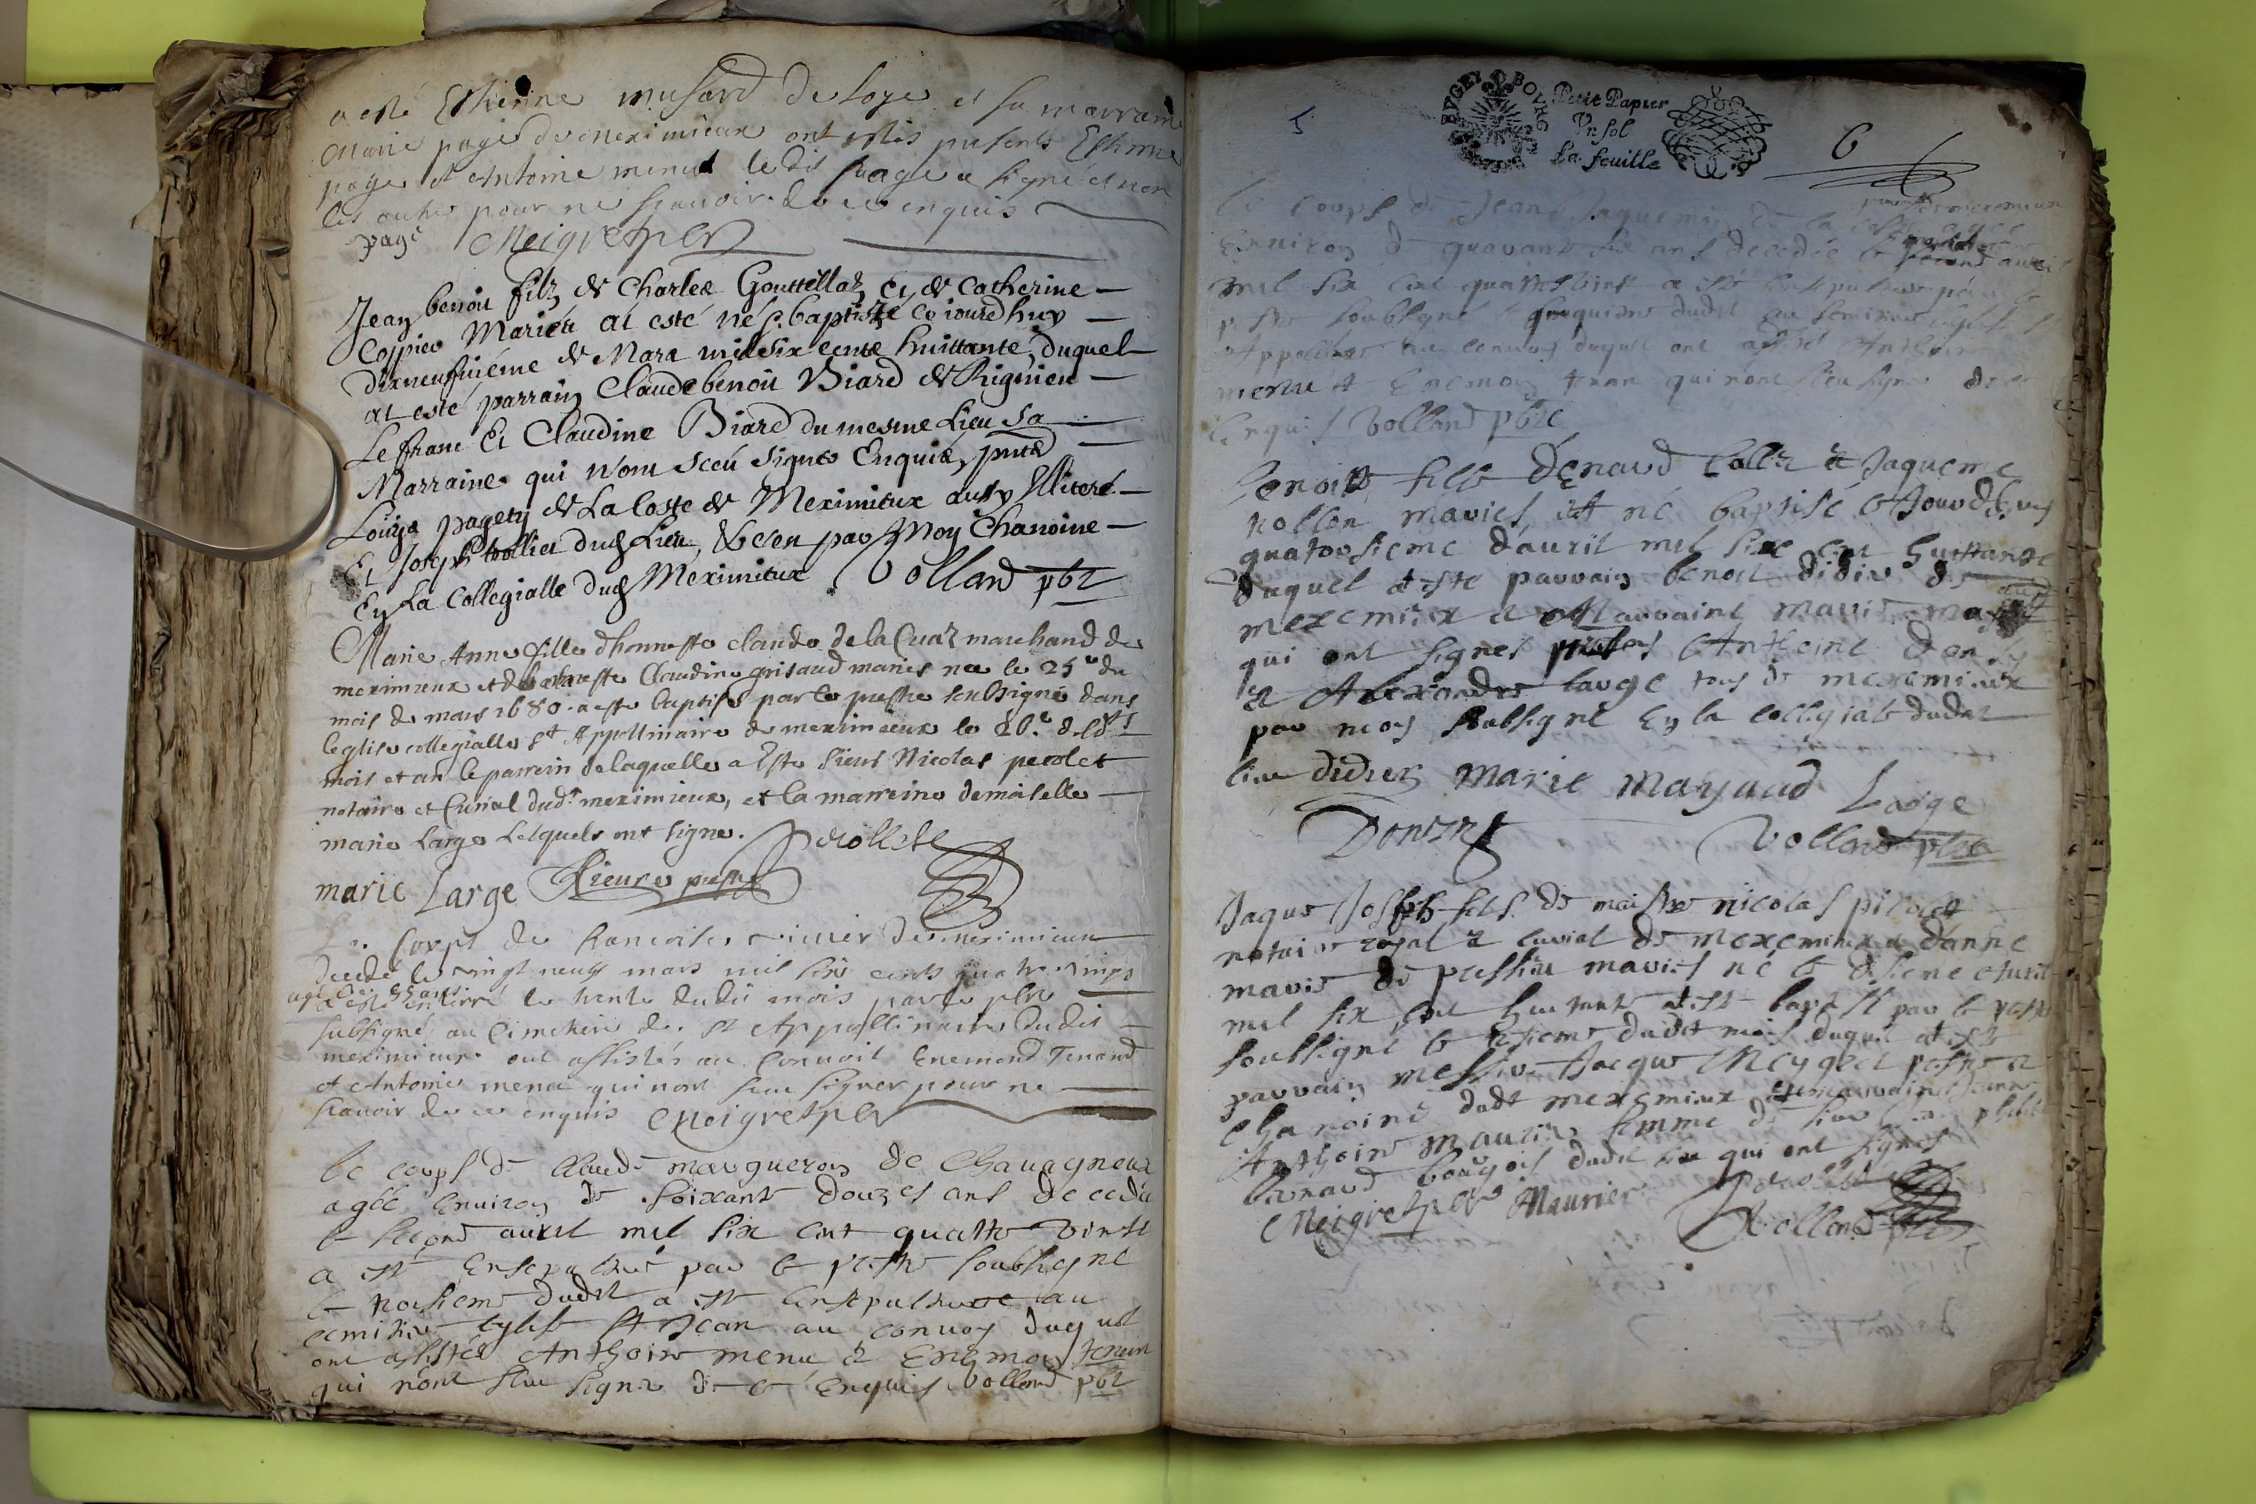 a esté Estienne musard de loye et sa marraine
Marie page de meximieux ont estés presents Estienne
page et Antoine menut ledit page a signé et non
les autres pour ne scavoir de ce enquis
page Meigret pbr
Jean benoit filz de Charles Gouttellaz et de Catherine
Coppier Mariéz at esté né & baptizé ce iourdhuy
dixneufuiéme de Mars mil six cents huittante, duquel
at esté parrain Claude benoit Biard de Rignieu
Le franc Et Claudine Biard du mesme Lieu sa
Marraine qui n'ont sceu signer Enquis, pnts
Louys pagety de La Coste de Meximieux aussy Illiteré
Et Joseph trollier dud Lieu, & ce par Moy Chanoine
En La Collegialle dud Meximieux Volland pbr
Marie Anne fille dhonneste claude de la Cuaz marchand de
meximieux et dhonneste Claudine grisaud mariés née le 25e du
mois de mars 1680 a este baptisée par le prestre soubsigné dans
leglise collegialle St Appollinaire de meximieux le 26e desdts
mois et an le parrein de laquelle a este sieur Nicolas perolet
notaire et Curial dudt meximieux, et la marreine demoiselle
marie Large Lesquels ont signe. Perollet
marie Large Rieure prestre
Le Corps de francoise de meximieux
decedé le vingt neuf mars mil six cents quatre vings
agé de ans
a esté enterré le trente dudit mois par le pbre
subsigné au Cimetiere de St Appollinaire dudit
meximieux ont assistés au Convoit Enemond Tenand
et Antoine menu qui nont sceu signer pour ne
scavoir de ce enquis Meigret pbr
le corps de Claude margueron de Chavagneux
agée Environ de soixante douzes ans decedée
le second auril mil six cent quattre vints
a esté Ensepulture par le prestre soubsigne
le troisieme dudit a esté Ensepulture au
cemitiere eglise St Jean au convoy duquel
ont assistés Anthoine menu & Enemon tenan
qui n'ont sceu signer de ce Enquis Volland pbr
5
BVGEY BOVRG
Petit Papier
Vn sol
La feuille
6
le corps de Jean Jaquemin de la
Environ de quarante six ans decedée le second auril
mil six cent quattre vints a esté Ensepulture par le
prestre soubsigné le dudit au cemitiere
Appollinaire au convoy duquel ont assisté Anthoine
menu & Enemon tenan qui nont sceu signer de ce
Enquis Volland pbr
Benoist fils dEnard Collet & Jaqueme
rollon mariés at né baptisé ce Jourdhuy
quatorsieme d'auril mil six cent huittante
duquel a este parrain benoit didier de
meximieux & Marraine marie mayaud
qui ont signés presents Anthoine donzy
& Alexandre large tous de meximieux
par moy soubsigné En la collegiale dudit
lieu didier marie mayaud Large
Donzy Volland pbr
Jaque Joseph fils de maistre nicolas perolet
notaire royal & curial de meximieux & d'anne
marie de pressieu mariés né le dSieme auril
mil six cent huittante a este baptisé par le prestre
soubsigné le dudit mois duquel a esté
parrain messire Jacque Meygret prestre &
chanoine dudit meximieux & marraine Jeanne
Anthoine maurier femme de sieur
bernard bourgois dudit lieu qui ont signés
Meigret pbr Maurier Perollet
Volland pbr